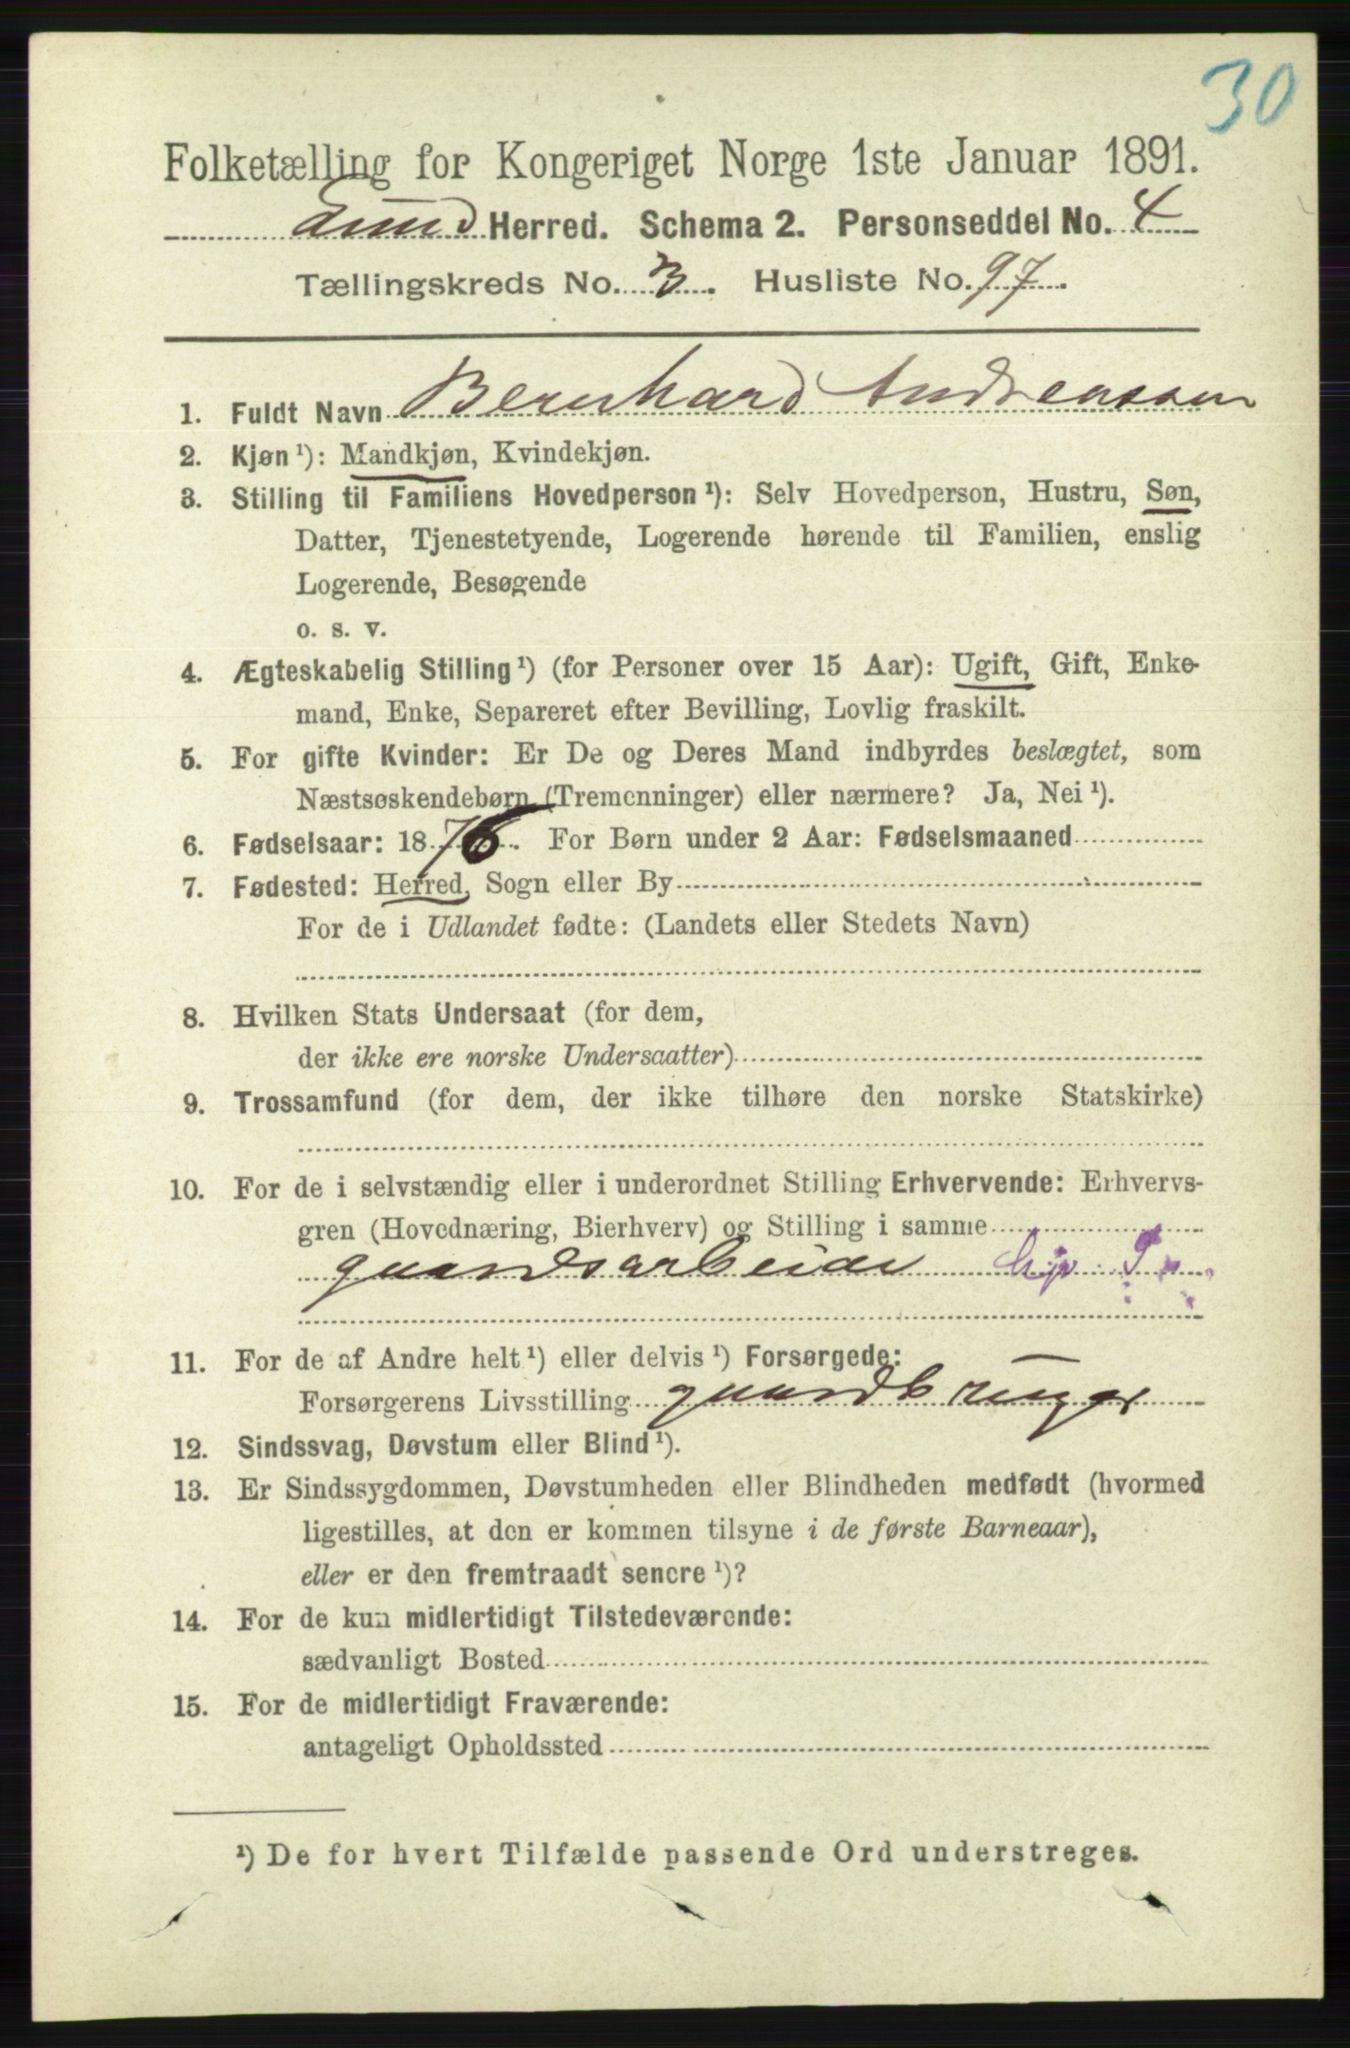 30
Folketælling for Kongeriget Norge 1ste Januar 1891.
Lund Herred. Schema 2. Personseddel No. 4
Tællingskreds No. 3. Husliste No. 97.
1. Fuldt Navn Bernhard Andreassen
2. Kjøn ¹): Mandkjøn, Kvindekjøn.
3. Stilling til Familiens Hovedperson ¹): Selv Hovedperson, Hustru, Søn,
Datter, Tjenestetyende, Logerende hørende til Familien, enslig
Logerende, Besøgende
o. s. v.
4. Ægteskabelig Stilling ¹) (for Personer over 15 Aar): Ugift, Gift, Enke-
mand, Enke, Separeret efter Bevilling, Lovlig fraskilt.
5. For gifte Kvinder: Er De og Deres Mand indbyrdes beslægtet, som
Næstsøskendebørn (Tremenninger) eller nærmere? Ja, Nei ¹).
6. Fødselsaar: 1876. For Børn under 2 Aar: Fødselsmaaned
7. Fødested: Herred, Sogn eller By
For de i Udlandet fødte: (Landets eller Stedets Navn)
8. Hvilken Stats Undersaat (for dem,
der ikke ere norske Undersaatter)
9. Trossamfund (for dem, der ikke tilhøre den norske Statskirke)
10. For de i selvstændig eller i underordnet Stilling Erhvervende: Erhvervs-
gren (Hovednæring, Bierhverv) og Stilling i samme
gaardsarbeide
11. For de af Andre helt ¹) eller delvis ¹) Forsørgede:
Forsørgerens Livsstilling gaardbruger
12. Sindssvag, Døvstum eller Blind ¹).
13. Er Sindssygdommen, Døvstumheden eller Blindheden medfødt (hvormed
ligestilles, at den er kommen tilsyne i de første Barneaar),
eller er den fremtraadt senere ¹)?
14. For de kun midlertidigt Tilstedeværende:
sædvanligt Bosted
15. For de midlertidigt Fraværende:
antageligt Opholdssted
¹) De for hvert Tilfælde passende Ord understreges.